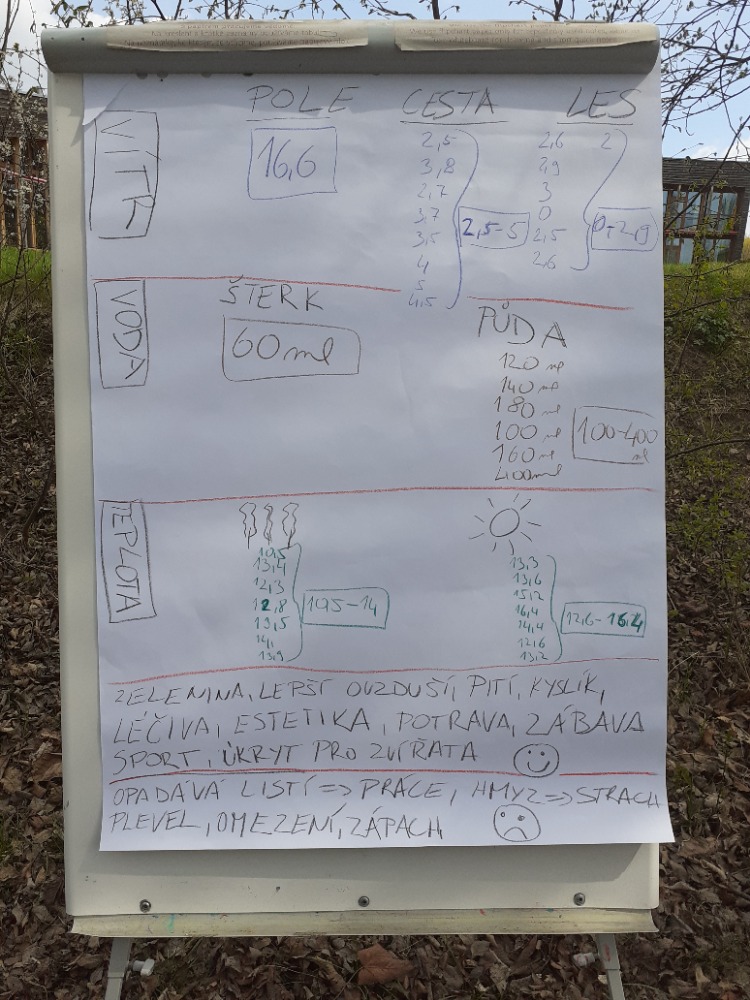 POLE CESTA LES
VÍTR
16,6
2,5
3,8
2,7
3,7
3,5
4
5
4,5
2,5-5
2,6
2,9
3
0
2,5
2,6
2
0-2,9
VODA
ŠTERK
60ml
PŮDA
120 ml
140 ml
180 ml
100 ml
160 ml
400ml
100-400
ml
TEPLOTA
10,5
13,4
12,3
12,8
13,5
14,
13,9
10,5-14
13,3
13,6
15,2
16,4
14,4
12,6
13,2
12,6-16,4
ZELENINA, LEPŠÍ OVZDUŠÍ, PITÍ, KYSLÍK,
LÉČIVA, ESTETIKA, POTRAVA, ZÁBAVA
SPORT, ÚKRYT PRO ZVÍŘATA
OPADÁVÁ LISTÍ => PRÁCE, HMYZ => STRACH
PLEVEL, OMEZENÍ, ZÁPACH